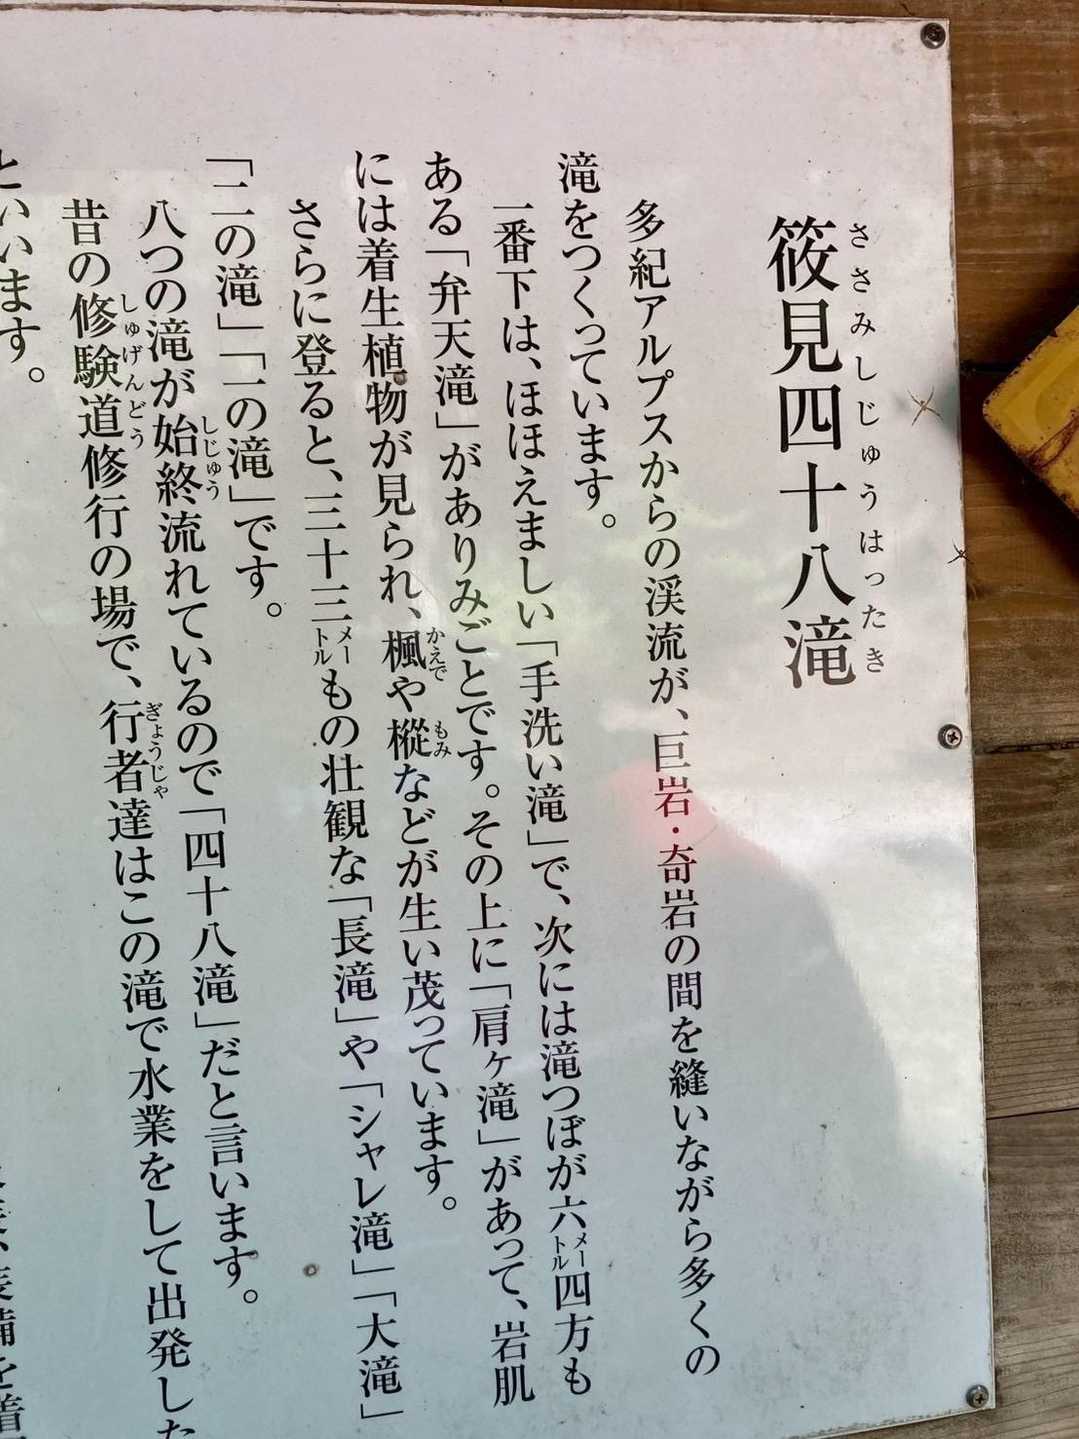 筱見四十八滝
ささみしじゅうはったき
多紀アルプスからの渓流が、巨岩・奇岩の間を縫いながら多くの
滝をつくっています。
一番下は、ほほえましい「手洗い滝」で、次には滝つぼが六メートル四方も
ある「弁天滝」がありみごとです。その上に「肩ヶ滝」があって、岩肌
には着生植物が見られ、楓や樅などが生い茂っています。
かえで
もみ
さらに登ると、三十三メートルもの壮観な「長滝」や「シャレ滝」「大滝」
「二の滝」「一の滝」です。
八つの滝が始終流れているので「四十八滝」だと言います。
しじゅう
昔の修験道修行の場で、行者達はこの滝で水業をして出発した
しゅげんどう
ぎょうじゃ
といいます。